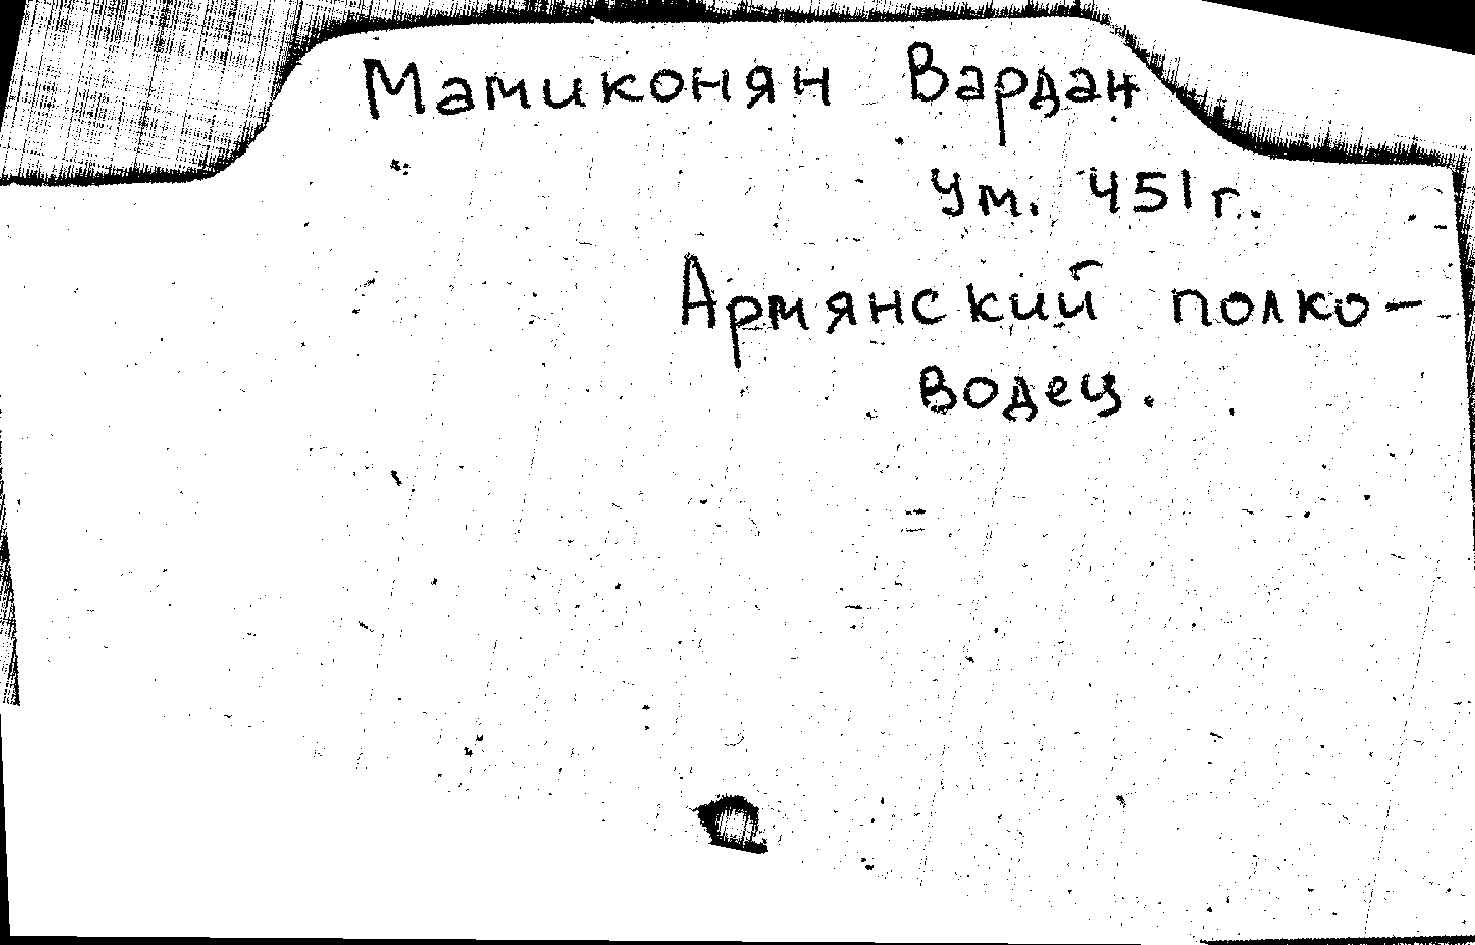 Мамиконян Вардан
Ум. 451 г.
Армянский полко-
водец.